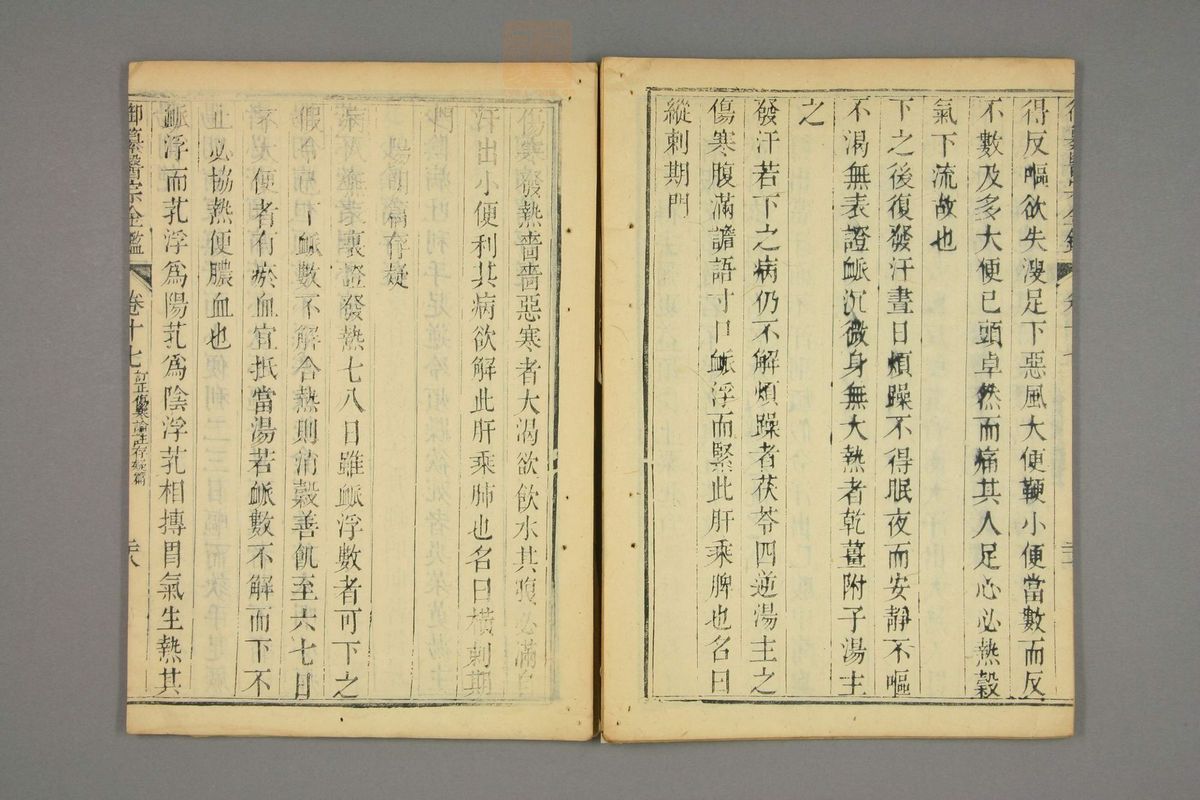 得反嘔欲失溲足下惡風大便鞕小便當數而反
不數及多大便已頭卓然而痛其人足心必熱穀
氣下流故也
下之後復發汗晝日煩躁不得眠夜而安靜不嘔
不渴無表證脈沉微身無大熱者乾薑附子湯主
之
發汗若下之病仍不解煩躁者茯苓四逆湯主之
傷寒腹滿譫語寸口脈浮而緊此肝乘脾也名曰
縱刺期門
傷寒發熱嗇嗇惡寒者大渴欲飲水其腹必滿自
汗出小便利其病欲解此肝乘肺也名曰橫刺期
門
陽明篇存疑
病人無表裏證發熱七八日雖脈浮數者可下之
假令已下脈數不解合熱則消穀善飢至六七日
不大便者有瘀血宜抵當湯若脈數不解而下不
止必協熱便膿血也
脈浮而芤浮爲陽芤爲陰浮芤相摶胃氣生熱其
御纂醫宗金鑑
卷十七
訂正傷寒論註存疑篇